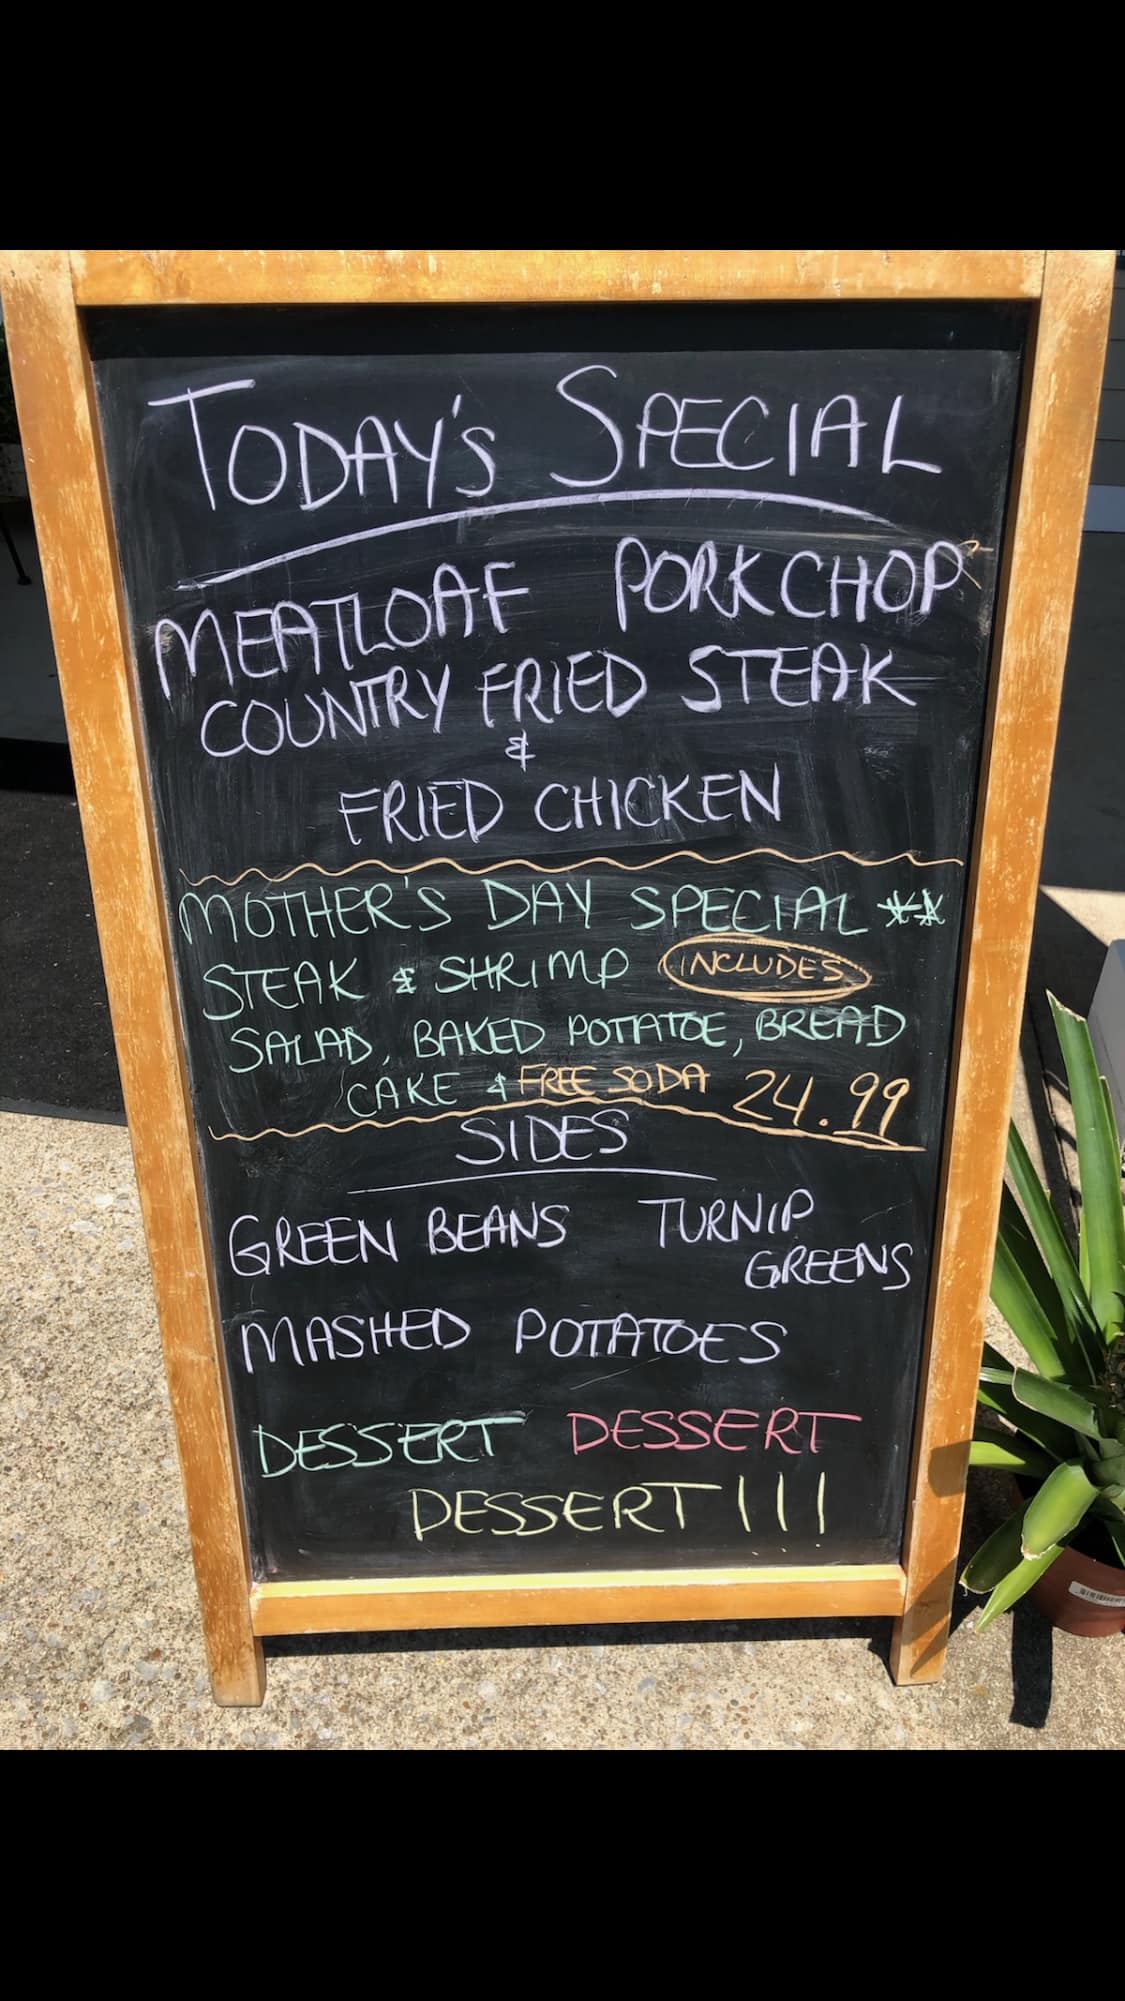 TODAY'S SPECIAL
MEATLOAF PORKCHOP
COUNTRY FRIED STEAK
&
FRIED CHICKEN
MOTHER'S DAY SPECIAL **
STEAK & SHRIMP INCLUDES
SALAD, BAKED POTATOE, BREAD
CAKE & FREE SODA 24.99
SIDES
GREEN BEANS TURNIP
GREENS
MASHED POTATOES
DESSERT DESSERT
DESSERT!!!